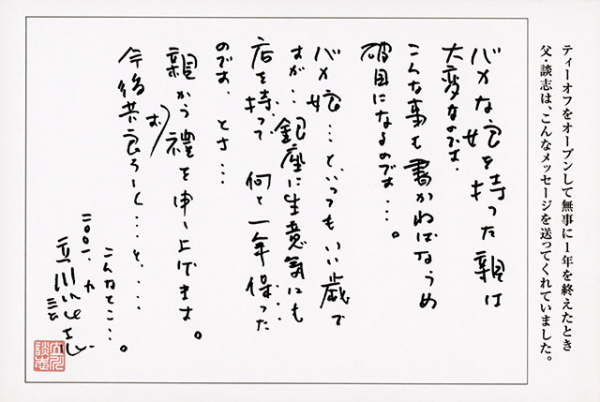 ティーオフをオープンして無事に1年を終えたとき
父・談志は、こんなメッセージを送ってくれていました。
バカな娘を持った親は
大変なのです.
こんな事も書かねばならぬ
破目になるのです…。
バカ娘…といってもいい歳で
すが…銀座に生意気にも
店を持って 何と一年保った
のです、とさ…
親から禮を申し上げます。
今後共お良ろしく…と、…
こんなとこ…。
二〇〇一.
立川談志